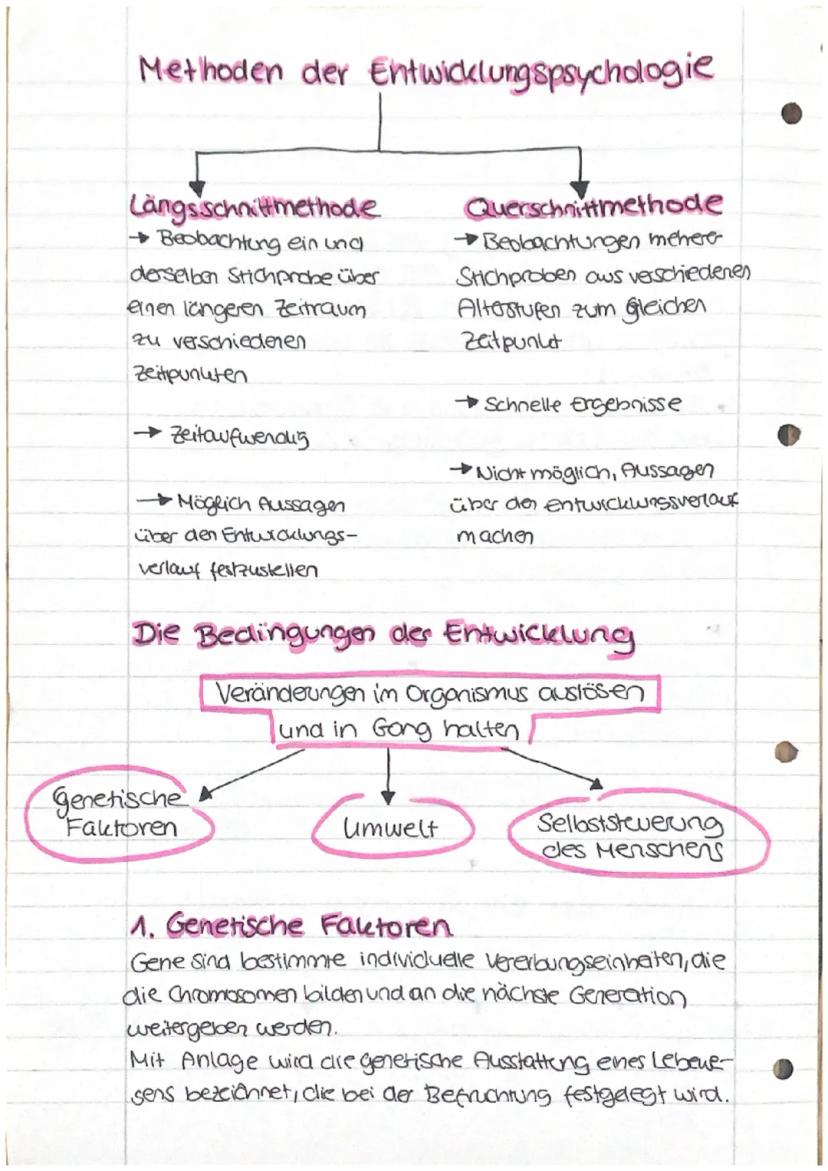 Methoden der Entwicklungspsychologie
Längsschnittmethode
→ Beobachtung ein und
derselben Stichprobe über
einen längeren Zeitraum
zu verschiedenen
Zeitpunkten
→ Zeitaufwendig
→ Möglich Aussagen
über den Entwicklungs-
verlauf festzustellen
Querschnittmethode
→ Beobachtungen meherer
Stichproben aus verschiedenen
Altersstufen zum gleichen
Zeitpunkt
→ Schnelle Ergebnisse
→ Nicht möglich, Aussagen
über den Entwicklungsverlauf
machen
Die Bedingungen der Entwicklung
Veränderungen im Organismus auslösen
und in Gang halten
Genetische
Faktoren
Umwelt
Selbststeuerung
des Menschens
1. Genetische Faktoren
Gene sind bestimmte individuelle Vererbungseinheiten, die
die Chromosomen bilden und an die nächste Generation
weitergeben werden.
Mit Anlage wird die genetische Ausstattung eines Lebewe-
sens bezeichnet, die bei der Befruchtung festgelegt wird.